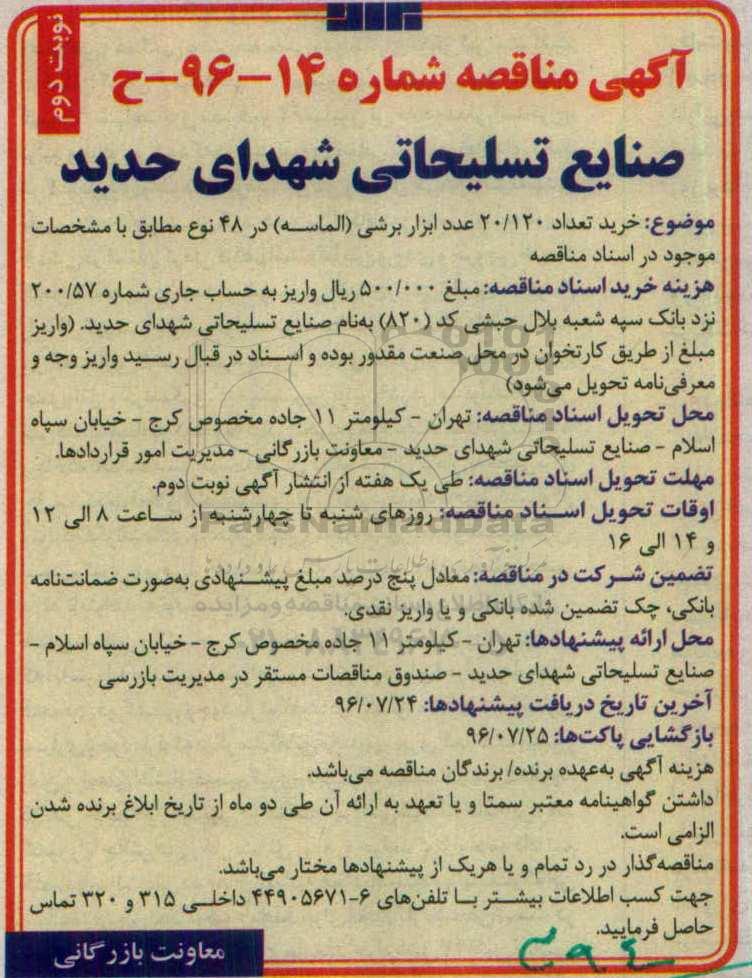 نوبت دوم
آگهی مناقصه شماره ۱۴-۹۶-ح
صنایع تسلیحاتی شهدای حدید
موضوع: خرید تعداد ۲۰/۱۲۰ عدد ابزار برشی (الماسه) در ۴۸ نوع مطابق با مشخصات
موجود در اسناد مناقصه
هزینه خرید اسناد مناقصه: مبلغ ۵۰۰/۰۰۰ ریال واریز به حساب جاری شماره ۲۰۰/۵۷
نزد بانک سپه شعبه بلال حبشی کد (۸۲۰) به‌نام صنایع تسلیحاتی شهدای حدید. (واریز
مبلغ از طریق کارتخوان در محل صنعت مقدور بوده و اسناد در قبال رسید واریز وجه و
معرفی‌نامه تحویل می‌شود)
محل تحویل اسناد مناقصه: تهران - کیلومتر ۱۱ جاده مخصوص کرج - خیابان سپاه
اسلام - صنایع تسلیحاتی شهدای حدید - معاونت بازرگانی - مدیریت امور قراردادها.
مهلت تحویل اسناد مناقصه: طی یک هفته از انتشار آگهی نوبت دوم.
اوقات تحویل اسناد مناقصه: روزهای شنبه تا چهارشنبه از ساعت ۸ الی ۱۲
و ۱۴ الی ۱۶
تضمین شرکت در مناقصه: معادل پنج درصد مبلغ پیشنهادی به‌صورت ضمانت‌نامه
بانکی، چک تضمین شده بانکی و یا واریز نقدی.
محل ارائه پیشنهادها: تهران - کیلومتر ۱۱ جاده مخصوص کرج - خیابان سپاه اسلام -
صنایع تسلیحاتی شهدای حدید - صندوق مناقصات مستقر در مدیریت بازرسی
آخرین تاریخ دریافت پیشنهادها: ۹۶/۰۷/۲۴
بازگشایی پاکت‌ها: ۹۶/۰۷/۲۵
هزینه آگهی به‌عهده برنده/ برندگان مناقصه می‌باشد.
داشتن گواهینامه معتبر سمتا و یا تعهد به ارائه آن طی دو ماه از تاریخ ابلاغ برنده شدن
الزامی است.
مناقصه‌گذار در رد تمام و یا هریک از پیشنهادها مختار می‌باشد.
جهت کسب اطلاعات بیشتر با تلفن‌های ۶-۴۴۹۰۵۶۷۱ داخلی ۳۱۵ و ۳۲۰ تماس
حاصل فرمایید.
معاونت بازرگانی
ParsNamadData